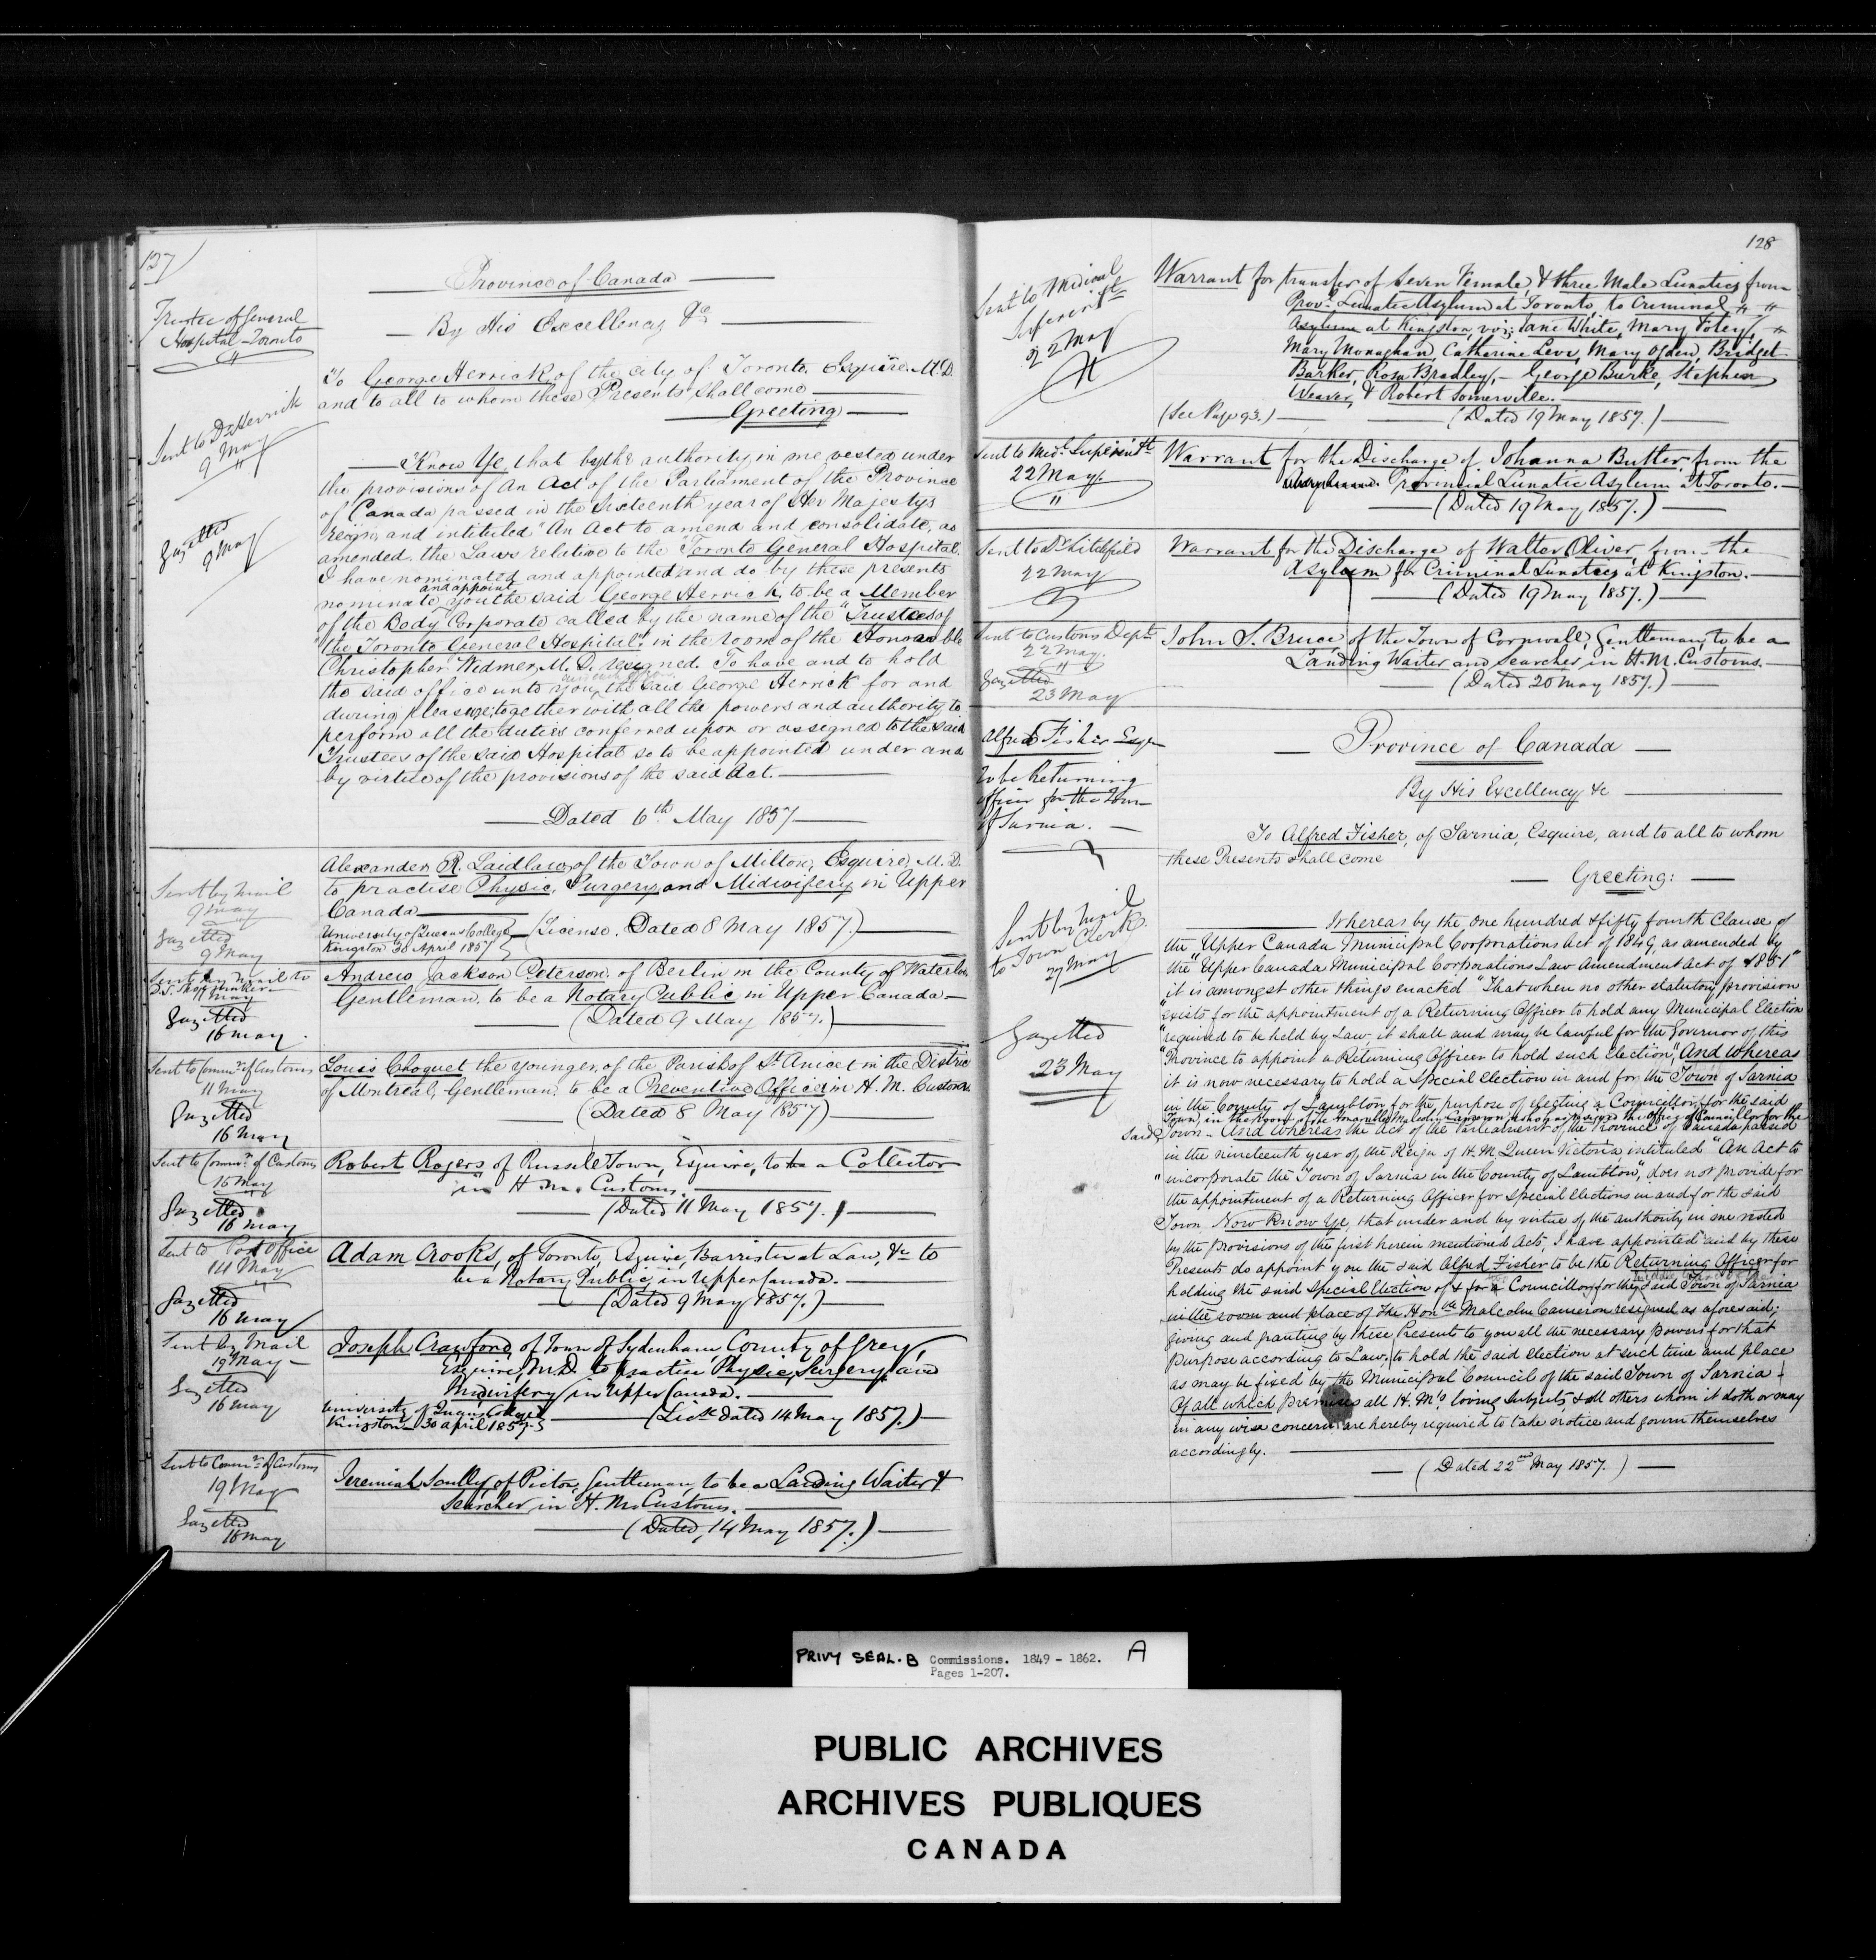 127
Trustee of General
Hospital - Toronto
"
Sent to Dr Herrick
9 May
"
Gazetted
9 May
Province of Canada
By His Excellency &c
To George Herrick, of the city of Toronto, Esquire, M.D.
and to all to whom these Presents shall come
Greeting
Know Ye, that by the authority in me vested under
the provisions of An Act of the Parliament of the Province
of Canada passed in the Sixteenth year of Her Majesty's
reign, and intituled "An Act to amend and consolidate, as
amended, the Laws relative to the Toronto General Hospital.
I have nominated and appointed and do by these presents
and appoint
nominate you the said George Herrick, to be a Member
of the Body Corporate called by the name of the "Trustees of
"the Toronto General Hospital", in the room of the Honorable
Christopher Widmer, M.D. resigned. To have and to hold
the said office unto you, the said George Herrick for and
during pleasure; together with all the powers and authority to
perform all the duties conferred upon or assigned to the said
Trustees of the said Hospital so to be appointed under and
by virtue of the provisions of the said Act.
Dated 6th May 1857
Sent by mail
9 May
Gazetted
9 May
Alexander R. Laidlaw, of the Town of Milton, Esquire, M.D.
to practise Physic, Surgery and Midwifery in Upper
Canada
University of Queens College
Kingston 30 April 1857
(License. Dated 8 May 1857.)
Sent by mail to
11 May
Gazetted
16 May.
Andrew Jackson Peterson, of Berlin in the County of Waterloo
Gentleman, to be a Notary Public in Upper Canada
(Dated 9 May 1857.)
Sent to Commr. of Customs
11 May
Gazetted
16 May
Louis Choquet the younger, of the Parish of St Anicet in the District
of Montreal, Gentleman, to be a Preventive Officer in H.M. Customs
(Dated 8 May 1857)
Sent to Commr. of Customs
16 May
Gazetted
16 May
Robert Rogers of Russell Town, Esquire, to be a Collector
in H.M. Customs.
(Dated 11 May 1857.)
Sent to Post Office
14 May
Gazetted
16 May
Adam Crooks, of Toronto, Esquire, Barrister at Law, &c to
be a Notary Public, in Upper Canada.
(Dated 9 May 1857.)
Sent by Mail
19 May
Gazetted
16 May
Joseph Crawford, of Town of Sydenham, County of Grey,
Esquire, M.D. to practise Physic, Surgery, and
Midwifery, in Upper Canada.
University of Queens College
Kingston 30 April 1857
(Lice dated 14 May 1857.)
Sent to Commr. of Customs
19 May
Gazetted
16 May
Jeremiah Scully, of Picton, Gentleman, to be a Landing Waiter &
Searcher, in H.M. Customs.
(Dated, 14 May 1857.)
128
Sent to Medical
Superintt
22 May
Warrant for transfer of Seven Female, & three Male Lunatics from
Provl. Lunatic Asylum at Toronto, to Criminal " "
Asylum at Kingston, viz; Jane White, Mary Foley, "
Mary Monaghan, Catherine Levi, Mary Ogden, Bridget
Barker, Rosa Bradley, - George Burke, Stephen
Weaver, & Robert Somerville.
(See Page 93.)
(Dated 19 May 1857.)
Sent to Medl. Superintt
22 May.
"
Warrant for the Discharge of Johanna Butler, from the
Provincial Lunatic Asylum at Toronto.
(Dated 19 May 1857.)
Sent to Dr Litchfield
22 May
Warrant for the Discharge of Walter Oliver, from the
Asylum for Criminal Lunatics at Kingston.
(Dated 19 May 1857.)
Sent to Customs Dept
22 May.
"
Gazetted
23 May
John S. Bruce, of the Town of Cornwall, Gentleman, to be a
Landing Waiter and Searcher, in H.M. Customs.
(Dated 20 May 1857.)
Alfred Fisher Esqr
To be Returning
officer for the Town
of Sarnia.
Sent by mail
to Town Clerk
27 May
Gazetted
23 May
Province of Canada
By His Excellency &c
To Alfred Fisher, of Sarnia, Esquire, and to all to whom
these Presents shall come
Greeting:
Whereas by the One hundred & fifty fourth Clause of
the "Upper Canada Municipal Corporations Act of 1849, as amended by
the "Upper Canada Municipal Corporations Law Amendment Act of 1851"
it is amongst other things enacted "That when no other statutory provision
"exists for the appointment of a Returning Officer to hold any Municipal Election
"required to be held by Law, it shall and may be lawful for the Governor of this
"Province to appoint a Returning Officer to hold such Election", And Whereas
it is now necessary to hold a Special Election in and for the Town of Sarnia
in the County of Lambton for the purpose of electing a Councillor for the said
Town, in the room of the Honorable Malcolm Cameron, who has resigned the office of Councillor for the
said Town - And whereas the Act of the Parliament of the Province of Canada passed
in the nineteenth year of the Reign of H.M. Queen Victoria, intituled "An Act to
"incorporate the Town of Sarnia in the County of Lambton", does not provide for
the appointment of a Returning Officer for Special Elections in and for the said
Town. Now Know Ye, that under and by virtue of the authority in me vested
by the provisions of the first herein mentioned Acts, I have appointed and by these
Presents do appoint you the said Alfred Fisher to be the Returning Officer for
holding the said Special Election of & for a Councillor for the said Town of Sarnia
in the room and place of the Honble Malcolm Cameron resigned as aforesaid;
giving and granting by these Presents to you all the necessary powers for that
purpose according to Law, to hold the said Election at such time and place
as may be fixed by the Municipal Council of the said Town of Sarnia
Of all which Premises all H.M's loving subjects, & all others whom it doth or may
in any wise concern are hereby required to take notice and govern themselves
accordingly.
(Dated 22nd May 1857.)
PRIVY SEAL. B Commissions. 1849 - 1862. A
Pages 1-207.
PUBLIC ARCHIVES
ARCHIVES PUBLIQUES
CANADA